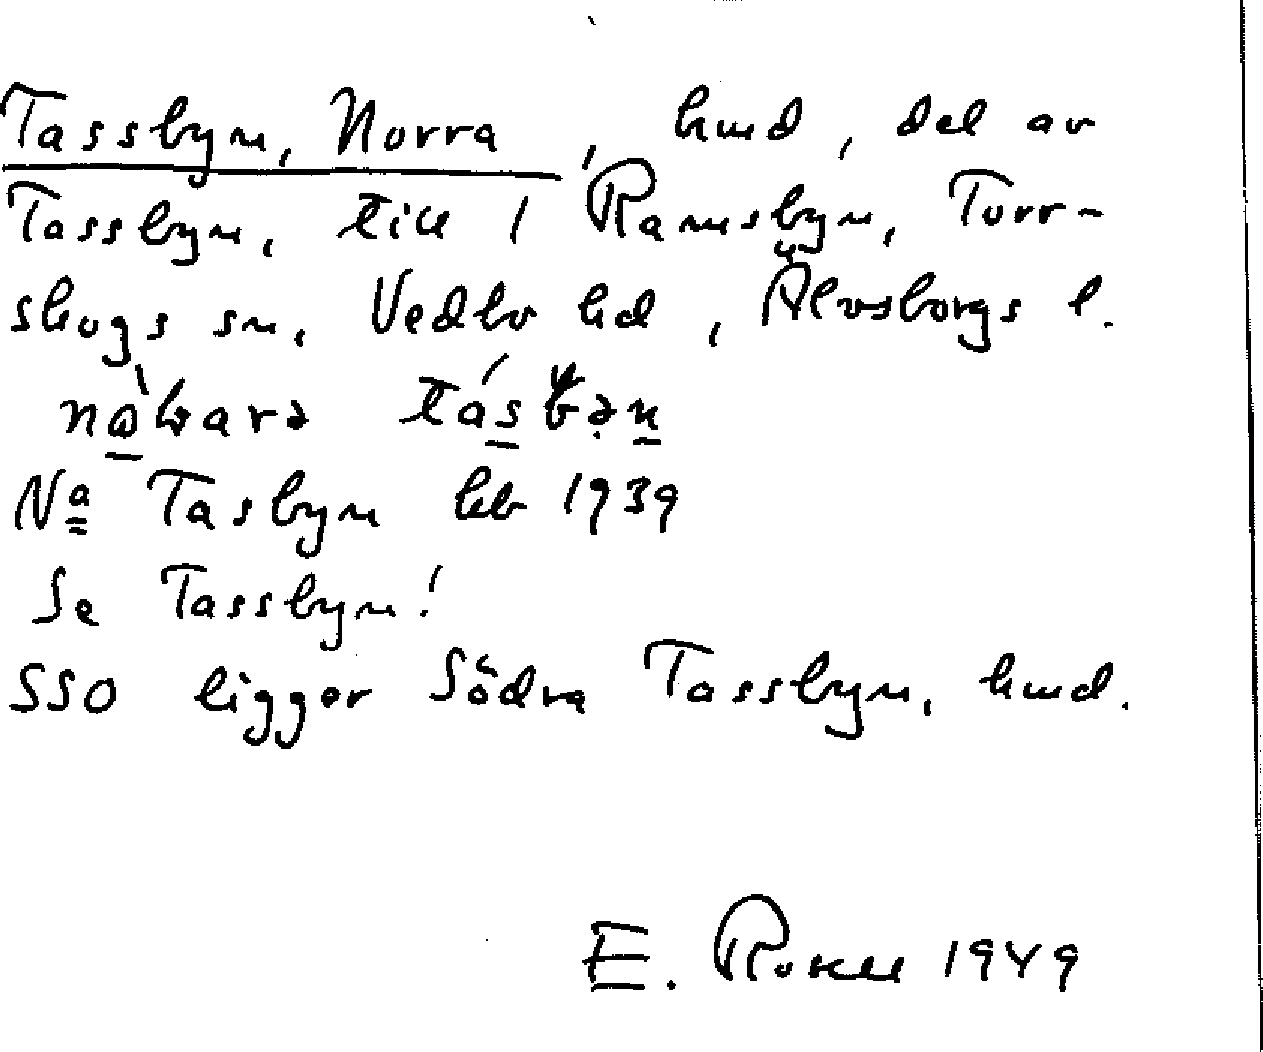 Tassbyn, Norra, hmd, del av
Tassbyn, till 1 Ramsbyn, Torr-
skogs sn, Vedbo hd, Älvsborgs l.
Na Tasbyn kb 1939
Se Tassbyn!
SSO ligger Södra Tassbyn, hmd.
E. Rosell 1949